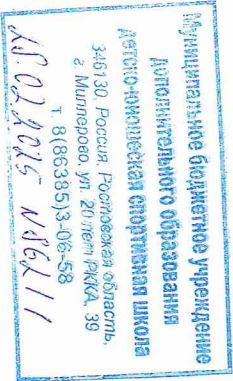 Муниципальное бюджетное учреждение
дополнительного образования
детско-юношеская спортивная школа
346130, Россия, Ростовская область,
г. Миллерово, ул. 20 лет РККА, 39
т. 8(86385)3-06-58